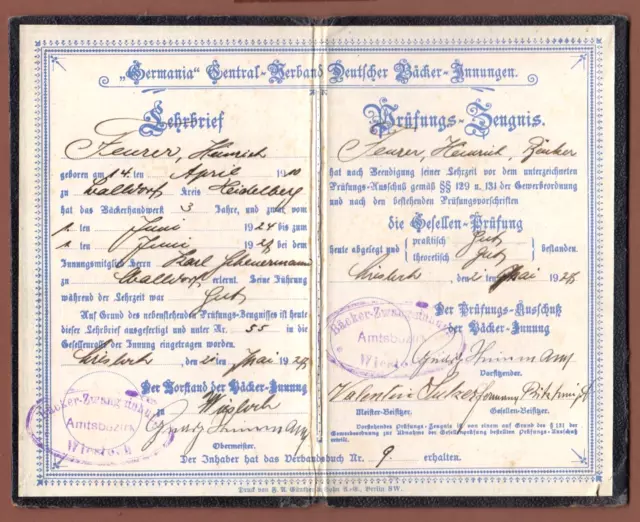 „Germania“ Central-Verband Deutscher Bäcker-Innungen.
Lehrbrief
Feurer, Heinrich
geboren am 14 ten April 1910
zu Walldorf Kreis Heidelberg
hat das Bäckerhandwerk 3 Jahre, und zwar vom
1 ten Juni 1924 bis zum
1 ten Juni 192 bei dem
Innungsmitglied Herrn Karl Scheuermann
zu Walldorf erlernt. Seine Führung
während der Lehrzeit war Gut
Auf Grund des nebenstehenden Prüfungs-Zeugnisses ist heute
dieser Lehrbrief ausgefertigt und unter Nr. 55 in die
Gesellenrolle der Innung eingetragen worden.
Wiesloch, den 2 ten Mai 192
Der Vorstand der Bäcker-Innung
zu Wiesloch
Obermeister.
Bäcker-Zwangsinnung
Amtsbezirk
Wiesloch
Prüfungs-Zeugnis.
Feurer, Heinrich, Bäcker
hat nach Beendigung seiner Lehrzeit vor dem unterzeichneten
Prüfungs-Ausschuß gemäß §§ 129 u. 131 der Gewerbeordnung
und nach den bestehenden Prüfungsvorschriften
die Gesellen-Prüfung
praktisch Gut
heute abgelegt und bestanden.
theoretisch Gut
Wiesloch, den 2 Mai 192
Der Prüfungs-Ausschuß
der Bäcker-Innung
Bäcker-Zwangsinnung
Amtsbezirk
Wiesloch
Vorsitzender.
Valentin Sulzer
Meister-Beisitzer. Gesellen-Beisitzer.
Vorstehendes Prüfungs-Zeugnis ist von einem auf Grund des § 131 der
Gewerbeordnung zur Abnahme der Gesellenprüfung bestellten Prüfungs-Ausschuß
erteilt.
Der Inhaber hat das Verbandsbuch Nr. 9 erhalten.
Druck von F. A. Günther & Sohn A.-G., Berlin SW.